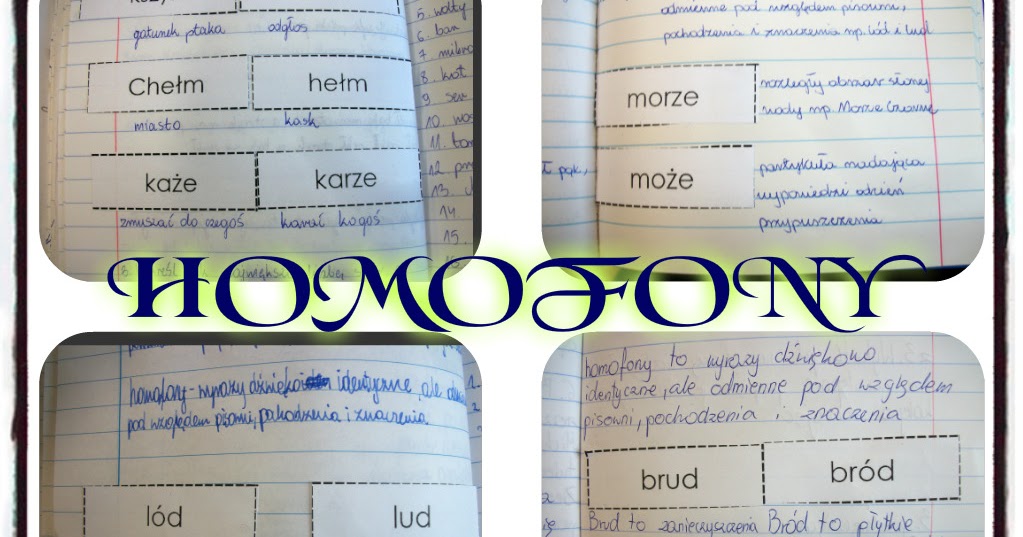 gatunek ptaka odgłos
5. wolty
6. ban
7 mikro
8. krot
9. ser
10. wos
Chełm hełm
miasto kask
11. tor
każe karze
12 prz
13.
zmuszać do czegoś karać kogoś
14.
15.
odmienne pod względem pisowni,
pochodzenia i znaczenia np. lód i lud
morze
rozległy obszar słonej
wody np. Morze Czerwone
może
partykuła nadająca
wypowiedzi odcień
przypuszczenia
HOMOFONY
homofony - wyrazy identyczne, ale
pod względem pisowni, pochodzenia i znaczenia.
lód lud
homofony to wyrazy dźwiękowo
identyczne, ale odmienne pod względem
pisowni, pochodzenia i znaczenia
brud bród
Brud to zanieczyszczenia Bród to płytkie